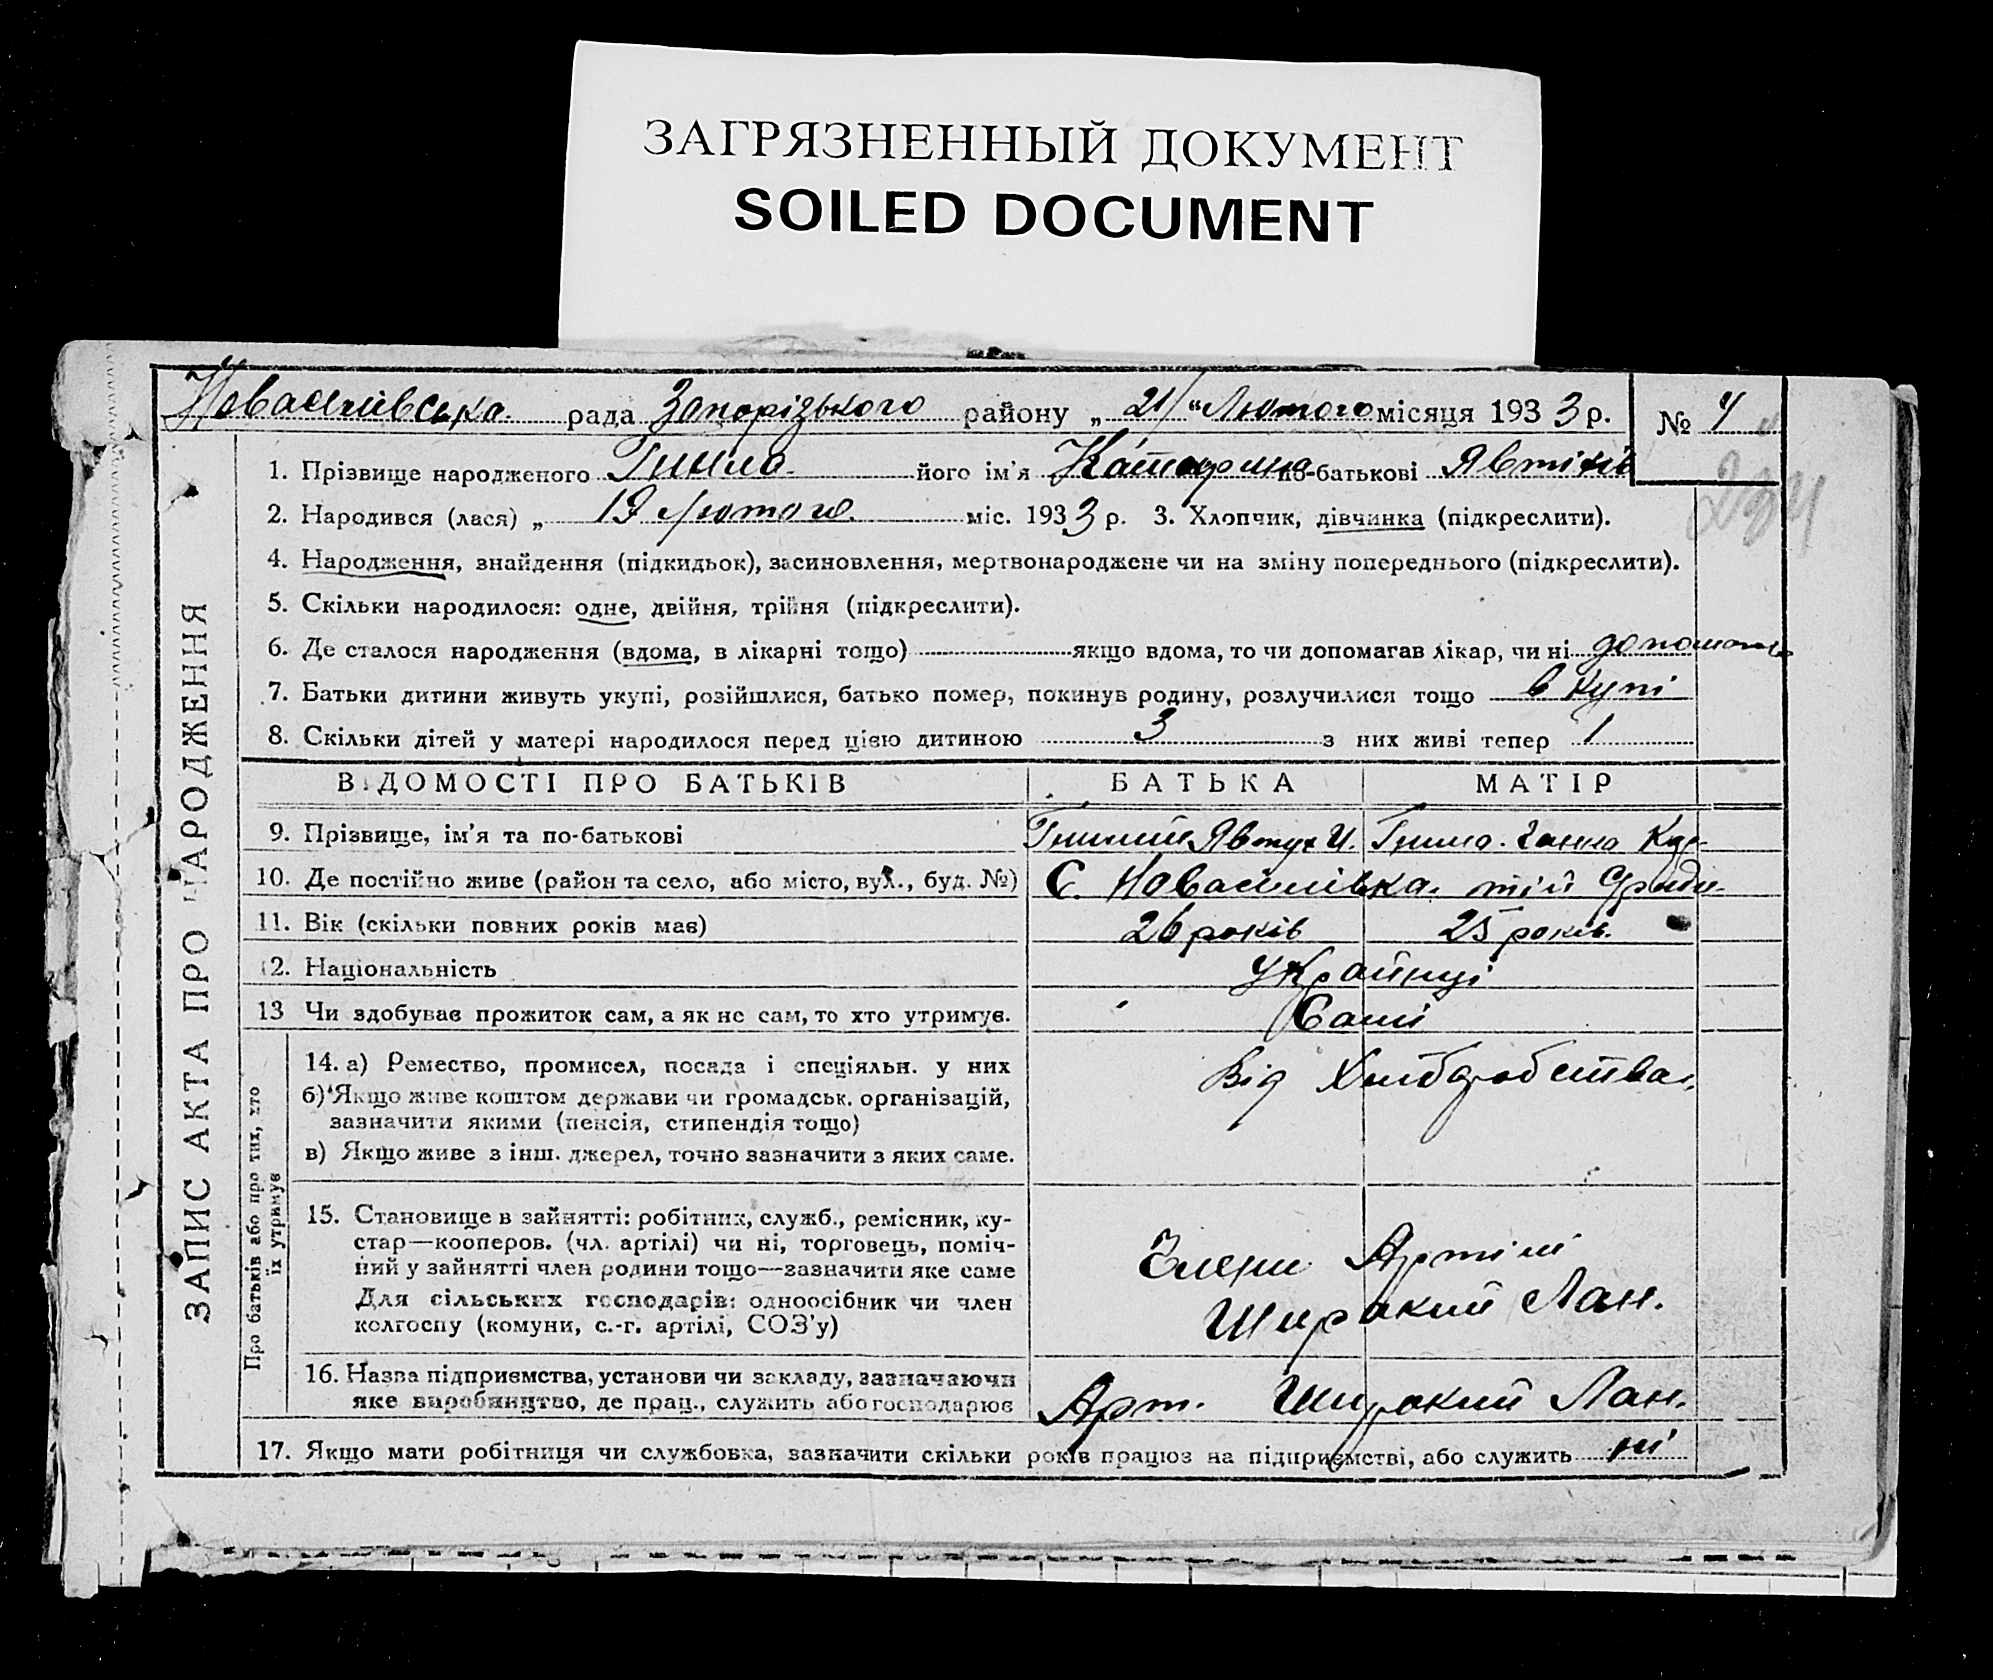 ЗАГРЯЗНЕННЫЙ ДОКУМЕНТ
SOILED DOCUMENT
рада Запорізького району „ 21 “ Лютого місяця 1933 р. № 4
ЗАПИС АКТА ПРО НАРОДЖЕННЯ
1. Прізвище народженого його ім'я Катерина по-батькові Явтихів
2. Народився (лася) „ 19 лютого міс. 1933 р. 3. Хлопчик, дівчинка (підкреслити).
4. Народження, знайдення (підкидьок), засиновлення, мертвонароджене чи на зміну попереднього (підкреслити).
5. Скільки народилося: одне, двійня, трійня (підкреслити).
6. Де сталося народження (вдома, в лікарні тощо) якщо вдома, то чи допомагав лікар, чи ні
7. Батьки дитини живуть укупі, розійшлися, батько помер, покинув родину, розлучилися тощо в купі
8. Скільки дітей у матері народилося перед цією дитиною 3 з них живі тепер 1
ВІДОМОСТІ ПРО БАТЬКІВ БАТЬКА МАТІР
9. Прізвище, ім'я та по-батькові Явтух И. Ганна
10. Де постійно живе (район та село, або місто, вул., буд. №) С.
11. Вік (скільки повних років має) 26 років 25 років.
12. Національність Українці
13 Чи здобуває прожиток сам, а як не сам, то хто утримує. Самі
Про батьків або про тих, хто
їх утримує
14. а) Ремество, промисел, посада і спеціяльн. у них Від Хліборобства.
б) Якщо живе коштом держави чи громадськ. організацій,
зазначити якими (пенсія, стипендія тощо)
в) Якщо живе з інш. джерел, точно зазначити з яких саме.
15. Становище в зайнятті: робітник, служб., ремісник, ку-
стар—кооперов. (чл. артілі) чи ні, торговець, поміч-
ний у зайнятті член родини тощо—зазначити яке саме
Для сільських господарів: одноосібник чи член
колгоспу (комуни, с.-г. артілі, СОЗ'у)
Члени Артілі
Широкий Лан.
16. Назва підприємства, установи чи закладу, зазначаючи
яке виробництво, де прац., служить або господарює Арт. Широкий Лан.
17. Якщо мати робітниця чи службовка, зазначити скільки років працює на підприємстві, або служить ні